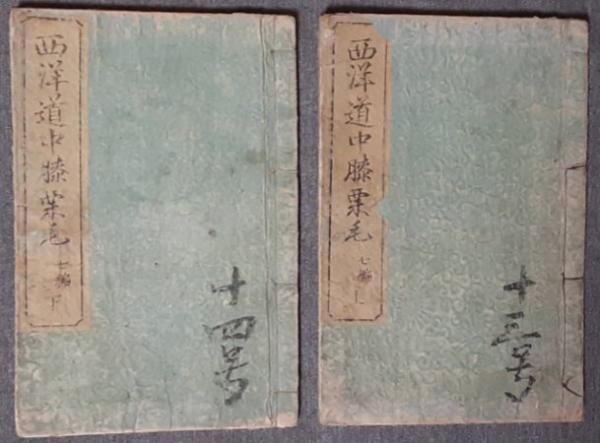 西洋道中膝栗毛 七編 上
十三号
西洋道中膝栗毛 七編 下
十四号